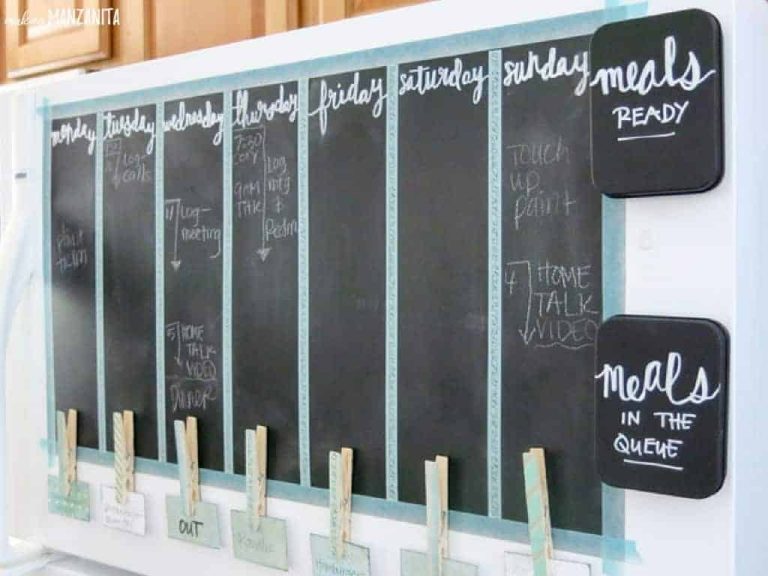 making MANZANITA
monday
tuesday
wednesday
thursday
friday
saturday
sunday
meals
READY
Log-
calls
7:30
Log
mtg
9AM
TALK
touch
up
paint
paint
trim
Log-
meeting
4
HOME
TALK
VIDEO
5
HOME
TALK
VIDEO
Dinner
meals
IN THE
QUEUE
OUT